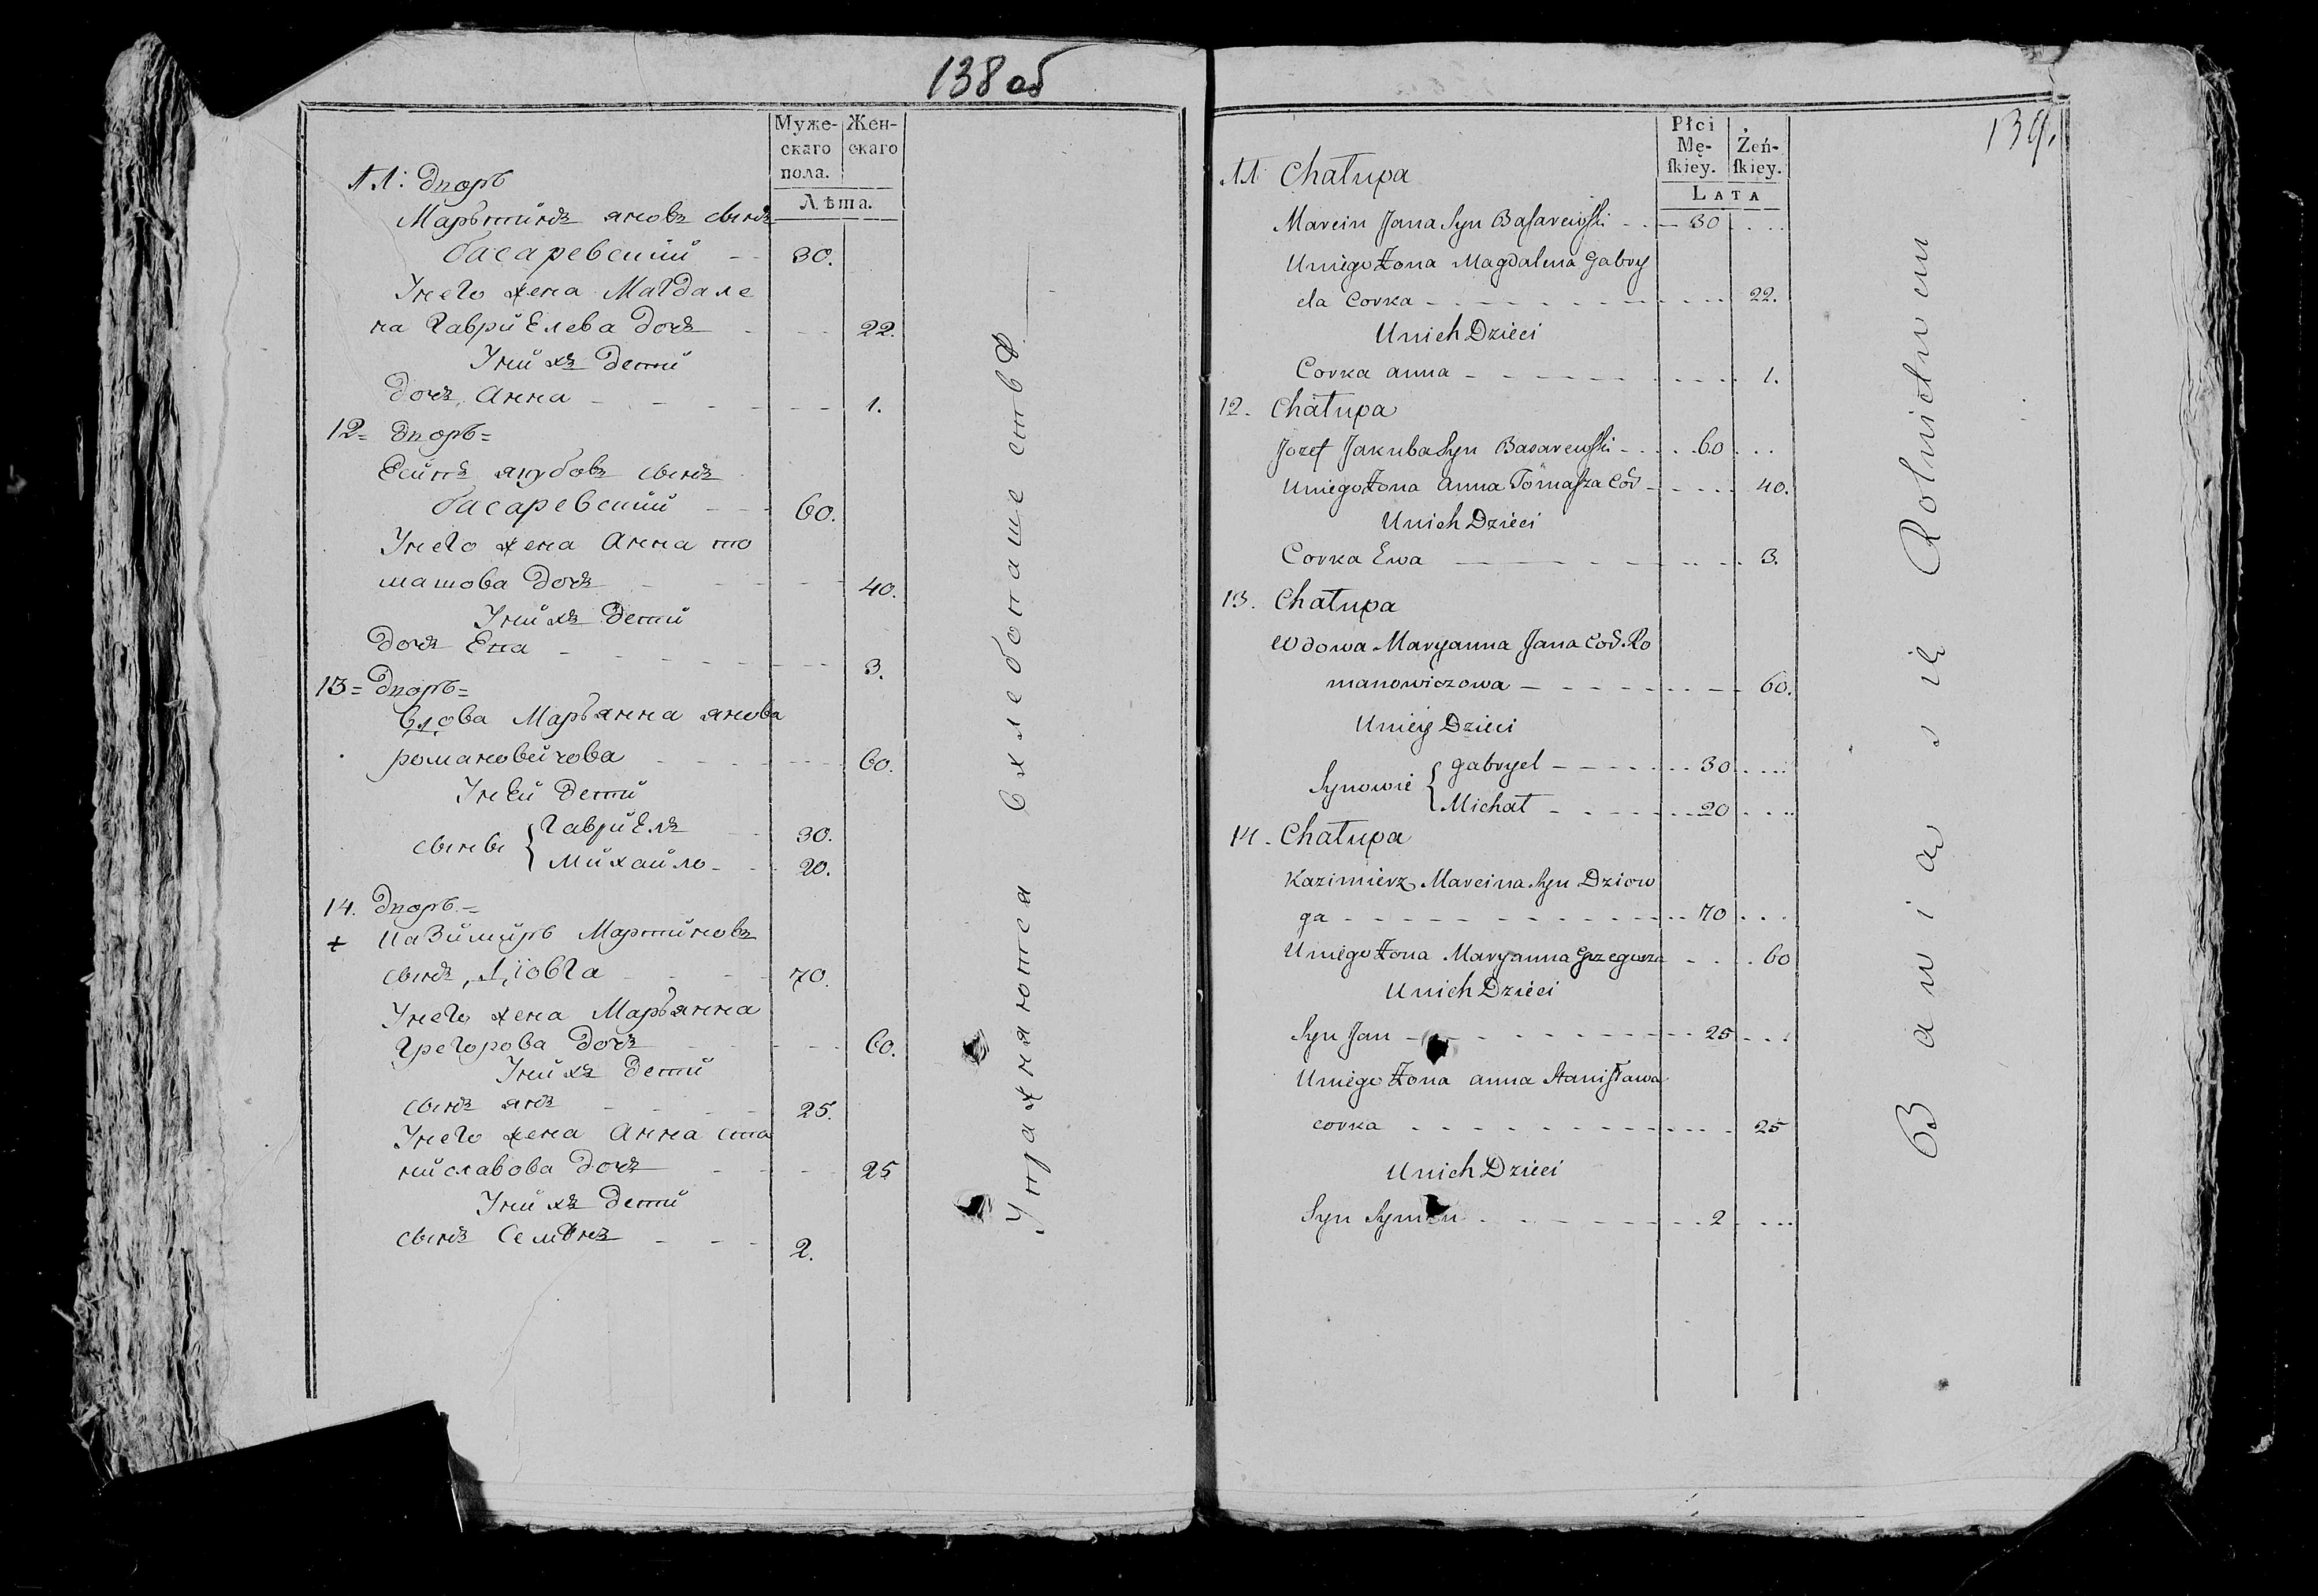 138 об
Муже-
скаго
пола.
Жен-
скаго
Лѣта.
11. Дворъ
Марътинъ яновъ сынъ
басаревский 30.
У него жена Магдале
на гавриелева дочь 22.
У них дети
дочь Анна 1.
12 = Дворъ =
Есипъ якубовъ сынъ
басаревский 60.
У него жена Анна то
машова дочь 40.
У них дети
дочь Ева 3.
13 = Дворъ =
Вдова Маръянна янова
романовичова 60.
У ней дети
сыны { гавриелъ 30.
Михайло 20.
14. Дворъ =
+ Казимиръ Мартиновъ
сынъ, Дзiовга 70.
У него жена Маръянна
грегорова дочь 60.
У них дети
сынъ янъ 25.
У него жена Анна ста
ниславова дочь 25
У них дети
сынъ Семѣнъ 2.
Упражняются в хлебопашестве
139.
Płci
Mę-
ſkiey.
Żeń-
ſkiey.
LATA
11 Chałupa
Marcin Jana Syn Basarewſki 30
U niego Żona Magdalena Gabry
ela Corka 22.
U nich Dzieci
Corka anna 1.
12. Chałupa
Jozef Jakuba Syn Basarewſki 60
U niego Żona Anna Tomaſza Cor 40.
U nich Dzieci
Corka Ewa 3.
13. Chałupa
Wdowa Maryanna Jana Cor. Ro
manowiczowa 60.
U niey Dzieci
Synowie { gabryel 30
Michał 20
14. Chałupa
Kazimierz Marcina Syn Dziow
ga 70
U niego Żona Maryanna Grzegorza 60
U nich Dzieci
Syn Jan 25
U niego Żona anna Staniſława
corka 25
U nich Dzieci
Syn Symon 2
Bawią się Rolnictwem